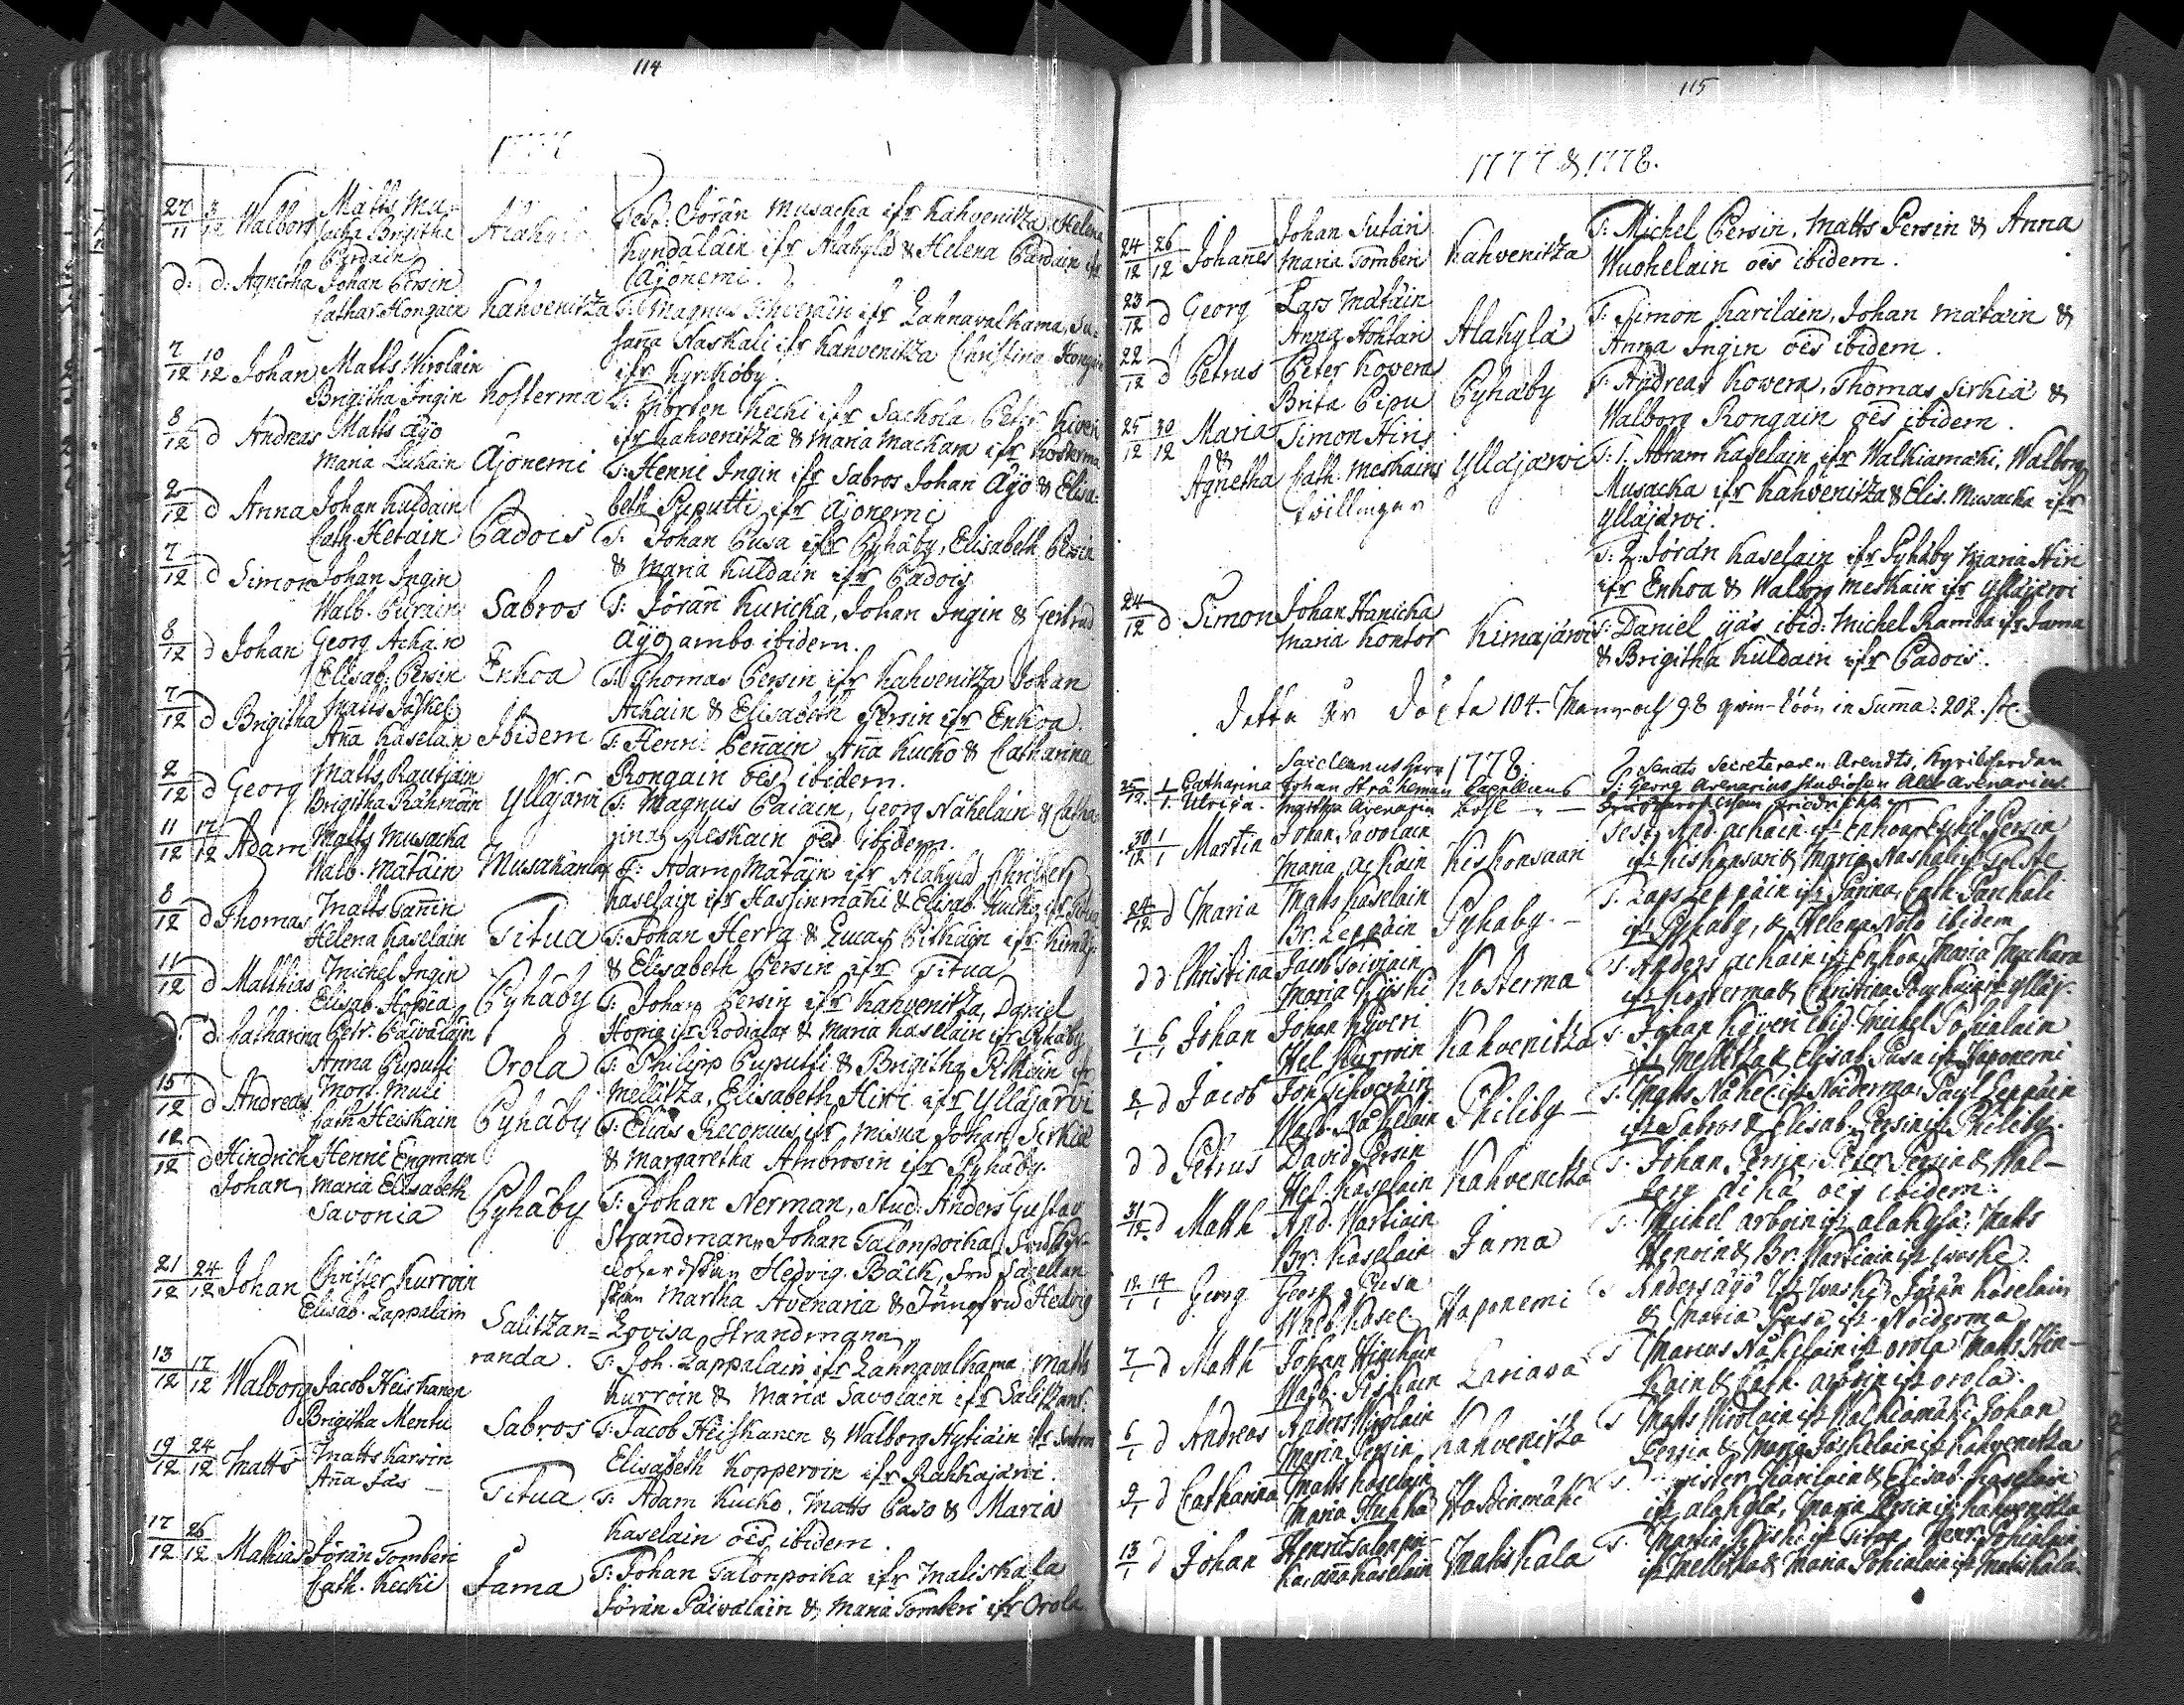 114
1777
27/11 3/12 Walborg Matts Mu-
sacka Brigitha
Pardain Alakylä Test: Jörän Musacka ifr Kahvenitza, Helena
Kyndäläin ifr Alakylä & Helena Pardain ifr
Äjönemi.
d: d: Agnetha Johan Persin
Cathar. Hongain Kahvenitza T: Magnus Tihverain ifr Lahnavalkama, Su-
sanna Naskali ifr Kahvenitza Christina Hongain
ifr Kyrkoby
7/12 10/12 Johan Matts Wirolain
Brigitha Ingin Kosterma T: Morten Kecki ifr Sackola, Petr. Kiveri
ifr Kahvenitza & Maria Mackara ifr Kosterma
8/12 d Andreas Matts Äyö
Maria Lukain Äjönemi T: Henric Ingin ifr Sabros Johan Äyö & Elisa-
beth Puputti ifr Äjonemi
2/12 d Anna Johan Kuldain
Cath. Hetain Padois T: Johan Pusa ifr Pyhäby, Elisabeth Persin
& Maria Kuldain ifr Padois
7/12 d Simon Johan Ingin
Walb. Purain Sabros T: Jörän Kuricka, Johan Ingin & Gertrud
Äyö ambo ibidem.
8/12 d Johan Georg Achain
Elisab: Persin Enkoa T: Thomas Persin ifr Kahvenitza Johan
Achain & Elisabeth Persin ifr Enkoa.
7/12 d Brigitha Matts Jäskel.
Anna Kaselan Ibidem T: Henric Pennain Anna Kucko & Catharina
Rongain oes ibidem.
2/12 d Georg Matts Rautiain
Brigitha Rähmän Ylläjärvi T: Magnus Paiain, Georg Nähelain & Catha-
rina Meskain oes ibidem.
11/12 17/12 Adam Matts Musacka
Walb. Mätäin Musakanla T: Adam Mätäin ifr Alakylä Christer
Kaselain ifr Hassinmäki & Elisab. Kucko ifr Titua
8/12 d Thomas Matts Tannin
Helena Kaselain Titua T: Johan Herra & Lucas Pitkäin ifr Kimäj:
& Elisabeth Persin ifr Titua
11/12 d Matthias Michel Ingin
Elisab. Hopia Pyhäby T: Johan Persin ifr Kahvenitza, Daniel
Hopia ifr Rodiala & Maria Kaselain ifr Pyhäby
d: d: Catharina Petr. Päiväläin
Anna Puputti Orola T: Philipp Puputti & Brigitha Pitkäin ifr
Mellitza, Elisabeth Hiri ifr Ylläjärvi
15/12 d Andreas Mort. Muli
Cath Heiskain Pyhäby T: Elias Reconius ifr Misua Johan Sirkiä
& Margaretha Ambrosin ifr Pyhäby.
12/12 d Hindrich
Johan Henric Engman
Maria Elisabeth
Savonia Pyhäby T: Johan Nerman, Stud: Anders Gustav
Strandman, Johan Talonpoika, Fru
Hedvig Bäck, Fru
Martha Avenaria & Jungfru Hedvig
Lovisa Strandmann
21/12 24/12 Johan Christer Kurroin
Elisab. Lappalain Salitzan=
randa. T: Joh. Lappalain ifr Lahnavalkama Matts
Kurroin & Maria Savolain ifr Salitzanr.
13/12 17/12 Walborg Jacob Heiskanen
Brigitha Mentu Sabros T: Jacob Heiskanen & Walborg Hytiäin ifr Sabros
Elisabeth Kopperoin ifr Rahkajärvi.
19/12 24/12 Matts Matts Karvin
Anna Säs Titua T: Adam Kucko, Matts Paso & Maria
Kaselain oes ibidem.
17/12 26/12 Mathias Jörän Tomberi
Cath. Kecki Jama T: Johan Talonpoika ifr Maliskala
Jörän Päiväläin & Maria Tomberi ifr Orola
115
1777 & 1778.
24/12 26/12 Johannes Johan Sutari
Maria Tomberi Kahvenitza T: Michel Persin, Matts Persin & Anna
Wuohelain oes ibidem.
23/12 d Georg Lars Mätäin
Anna Hohtari Alakylä T: Simon Karilain, Johan Mätäin &
Anna Ingin oes ibidem.
22/12 d Petrus Peter Kowera
Brita Pipu Pyhäby T: Andreas Kowera, Thomas Sirkiä &
Walborg Rongain oes ibidem.
25/12 30/12 Maria
&
Agnetha Simon Hiri
Cath. Meskain
tvillingar Ylläjärvi T: 1. Abram Kaselain ifr Walkiamäki, Walborg
Musacka ifr Kahvenitza & Elis. Musacka ifr
Ylläjärvi.
T: 2. Jörän Kaselain ifr Pyhäby Maria Hiri
ifr Enkoa & Walborg Meskain ifr Ylläjärvi
24/12 d Simon Johan Hanicka
Maria Kontor Kimajärvi T: Daniel Yjäs ibid: Michel Ramba ifr Jama
& Brigitha Kuldain ifr Padois.
Detta år döpta 104. Mann- och 98 qvin-köön in Summa: 202. st.
1778.
25/12 1/1 Catharina
Ulrica. Johan Stråhlman Capellanus
Martha Avenaria T: Georg Avenarius Studiosen Alex Avenarius
30/12 1/1 Martin Johan Savolain
Maria Achain Kiskonsaari Test: And. Achain ifr Enkoa, Eskil Persin
ifr Kiskonsari & Maria Naskali ifr
24/12 d Maria Matts Kaselain
Br. Leppäin Pyhäby T: Lars Leppäin ifr Parina, Cath. Pankali
ifr Pyhäby, & Helena Nolo ibidem
d d Christina Jacob Toiviain
Maria Kiiski Kosterma T: Anders Achain ifr Enkoa, Maria Mackara
ifr Kosterma & Christina ifr Ylläj.
1/1 6/1 Johan Johan Kiveri
Hel. Kurroin Kahvenitza T: Johan Kiveri ibid. Michel Pohialain
ifr Mellitza & Elisab. Pusa ifr Haponemi
2/1 d Jacob Joh. Tihverain
Walb. Nähelain Philiby T: Matts Nähel. ifr Noiderma, Påhl Leppäin
ifr Sabros & Elisab. Persin ifr Philiby.
d d Petrus David Persin
Hel. Kaselain Kahvenitza T: Johan Persin, Peter Persin & Wal-
borg oes ibidem.
31/12 d Matth And. Martiain
Br. Kaselain Jama T: Michel Arboin ifr Alakylä, Matts
& Br. Martiain ifr
12/1 14/1 Georg Georg Pusa
Walb. Kasel. Haponemi T: Anders Äyö ifr Jörän Kaselain
& Maria Pusa ifr Noiderma
7/1 d Matth Johan Hinkain
Walb. Pitkäin Lariava T: Marcus Nähelain ifr Orola Matts Hin-
kain & Cath. Arboin ifr Orola.
6/1 d Andreas Anders Wirolain
Maria Persin Kahvenitza T: Matts Wirolain ifr Walkiamäki Johan
Persin & Maria Jäskelain ifr Kahvenitza
9/1 d Catharina Matts Kaselain
Maria Hassinmäki T: Christer Karilain & Elisab. Kaselain
ifr Alakylä, Maria Persin ifr Kahvenitza
13/1 d Johan Henric Talonpoi-
ka, Anna Kaselain Matiskala T: Martin Kiiski ifr Titua, Henr. Pohialain
ifr Mellitza & Maria Pohialain ifr Matiskala.